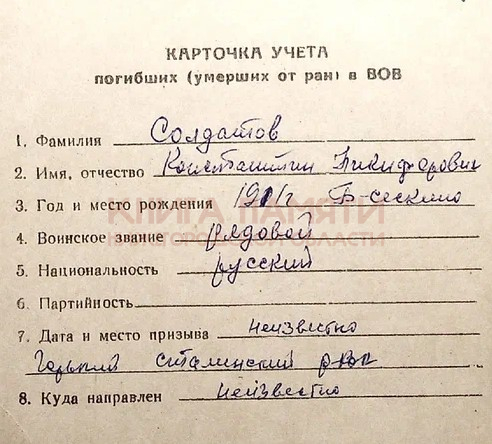 КАРТОЧКА УЧЕТА
погибших (умерших от ран) в ВОВ
1. Фамилия Солдатов
2. Имя, отчество Константин Никифорович
3. Год и место рождения 1911г Б-сескино
КНИГА ПАМЯТИ
НИЖЕГОРОДСКОЙ ОБЛАСТИ
4. Воинское звание рядовой
5. Национальность русский
6. Партийность
7. Дата и место призыва неизвестно
Горький Сталинский рвк
8. Куда направлен неизвестно